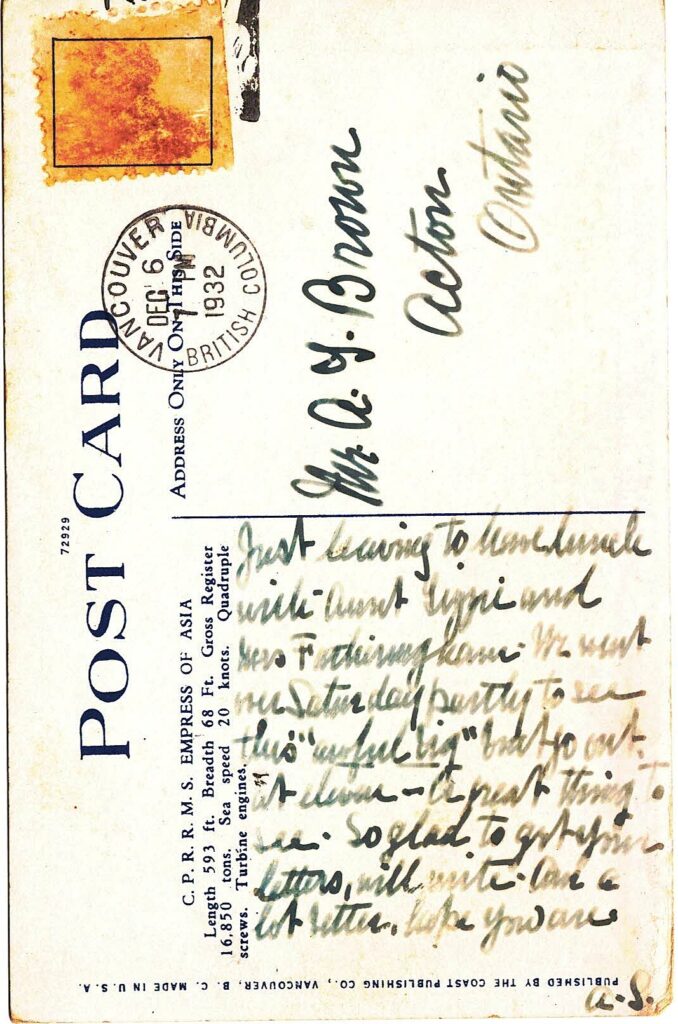 72929
POST CARD
ADDRESS ONLY ON THIS SIDE
VANCOUVER
DEC 6
7 PM
1932
BRITISH COLUMBIA
C. P. R. R. M. S. EMPRESS OF ASIA
Length 593 ft. Breadth 68 Ft. Gross Register
16,850 tons. Sea speed 20 knots. Quadruple
screws. Turbine engines.
Just leaving to have lunch
with Aunt Lizzie and
Mrs Fotheringham. We went
over Saturday partly to see
this "awful big" boat go out.
at eleven - A great thing to
see. So glad to get your
letters, will write. Am a
lot better, hope you are
A.S.
Mr. A. T. Brown
Acton
Ontario
PUBLISHED BY THE COAST PUBLISHING CO., VANCOUVER, B. C. MADE IN U. S. A.